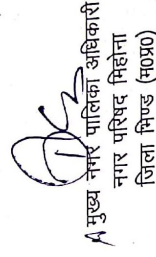 मुख्य नगर पालिका अधिकारी
नगर परिषद मिहोना
जिला भिण्ड (म0प्र0)